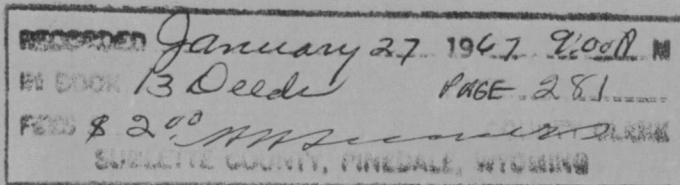 RECORDED January 27 1967 9:00 A M
IN BOOK 13 Deeds PAGE 281
FEES $ 2.00 CLERK
SUBLETTE COUNTY, PINEDALE, WYOMING